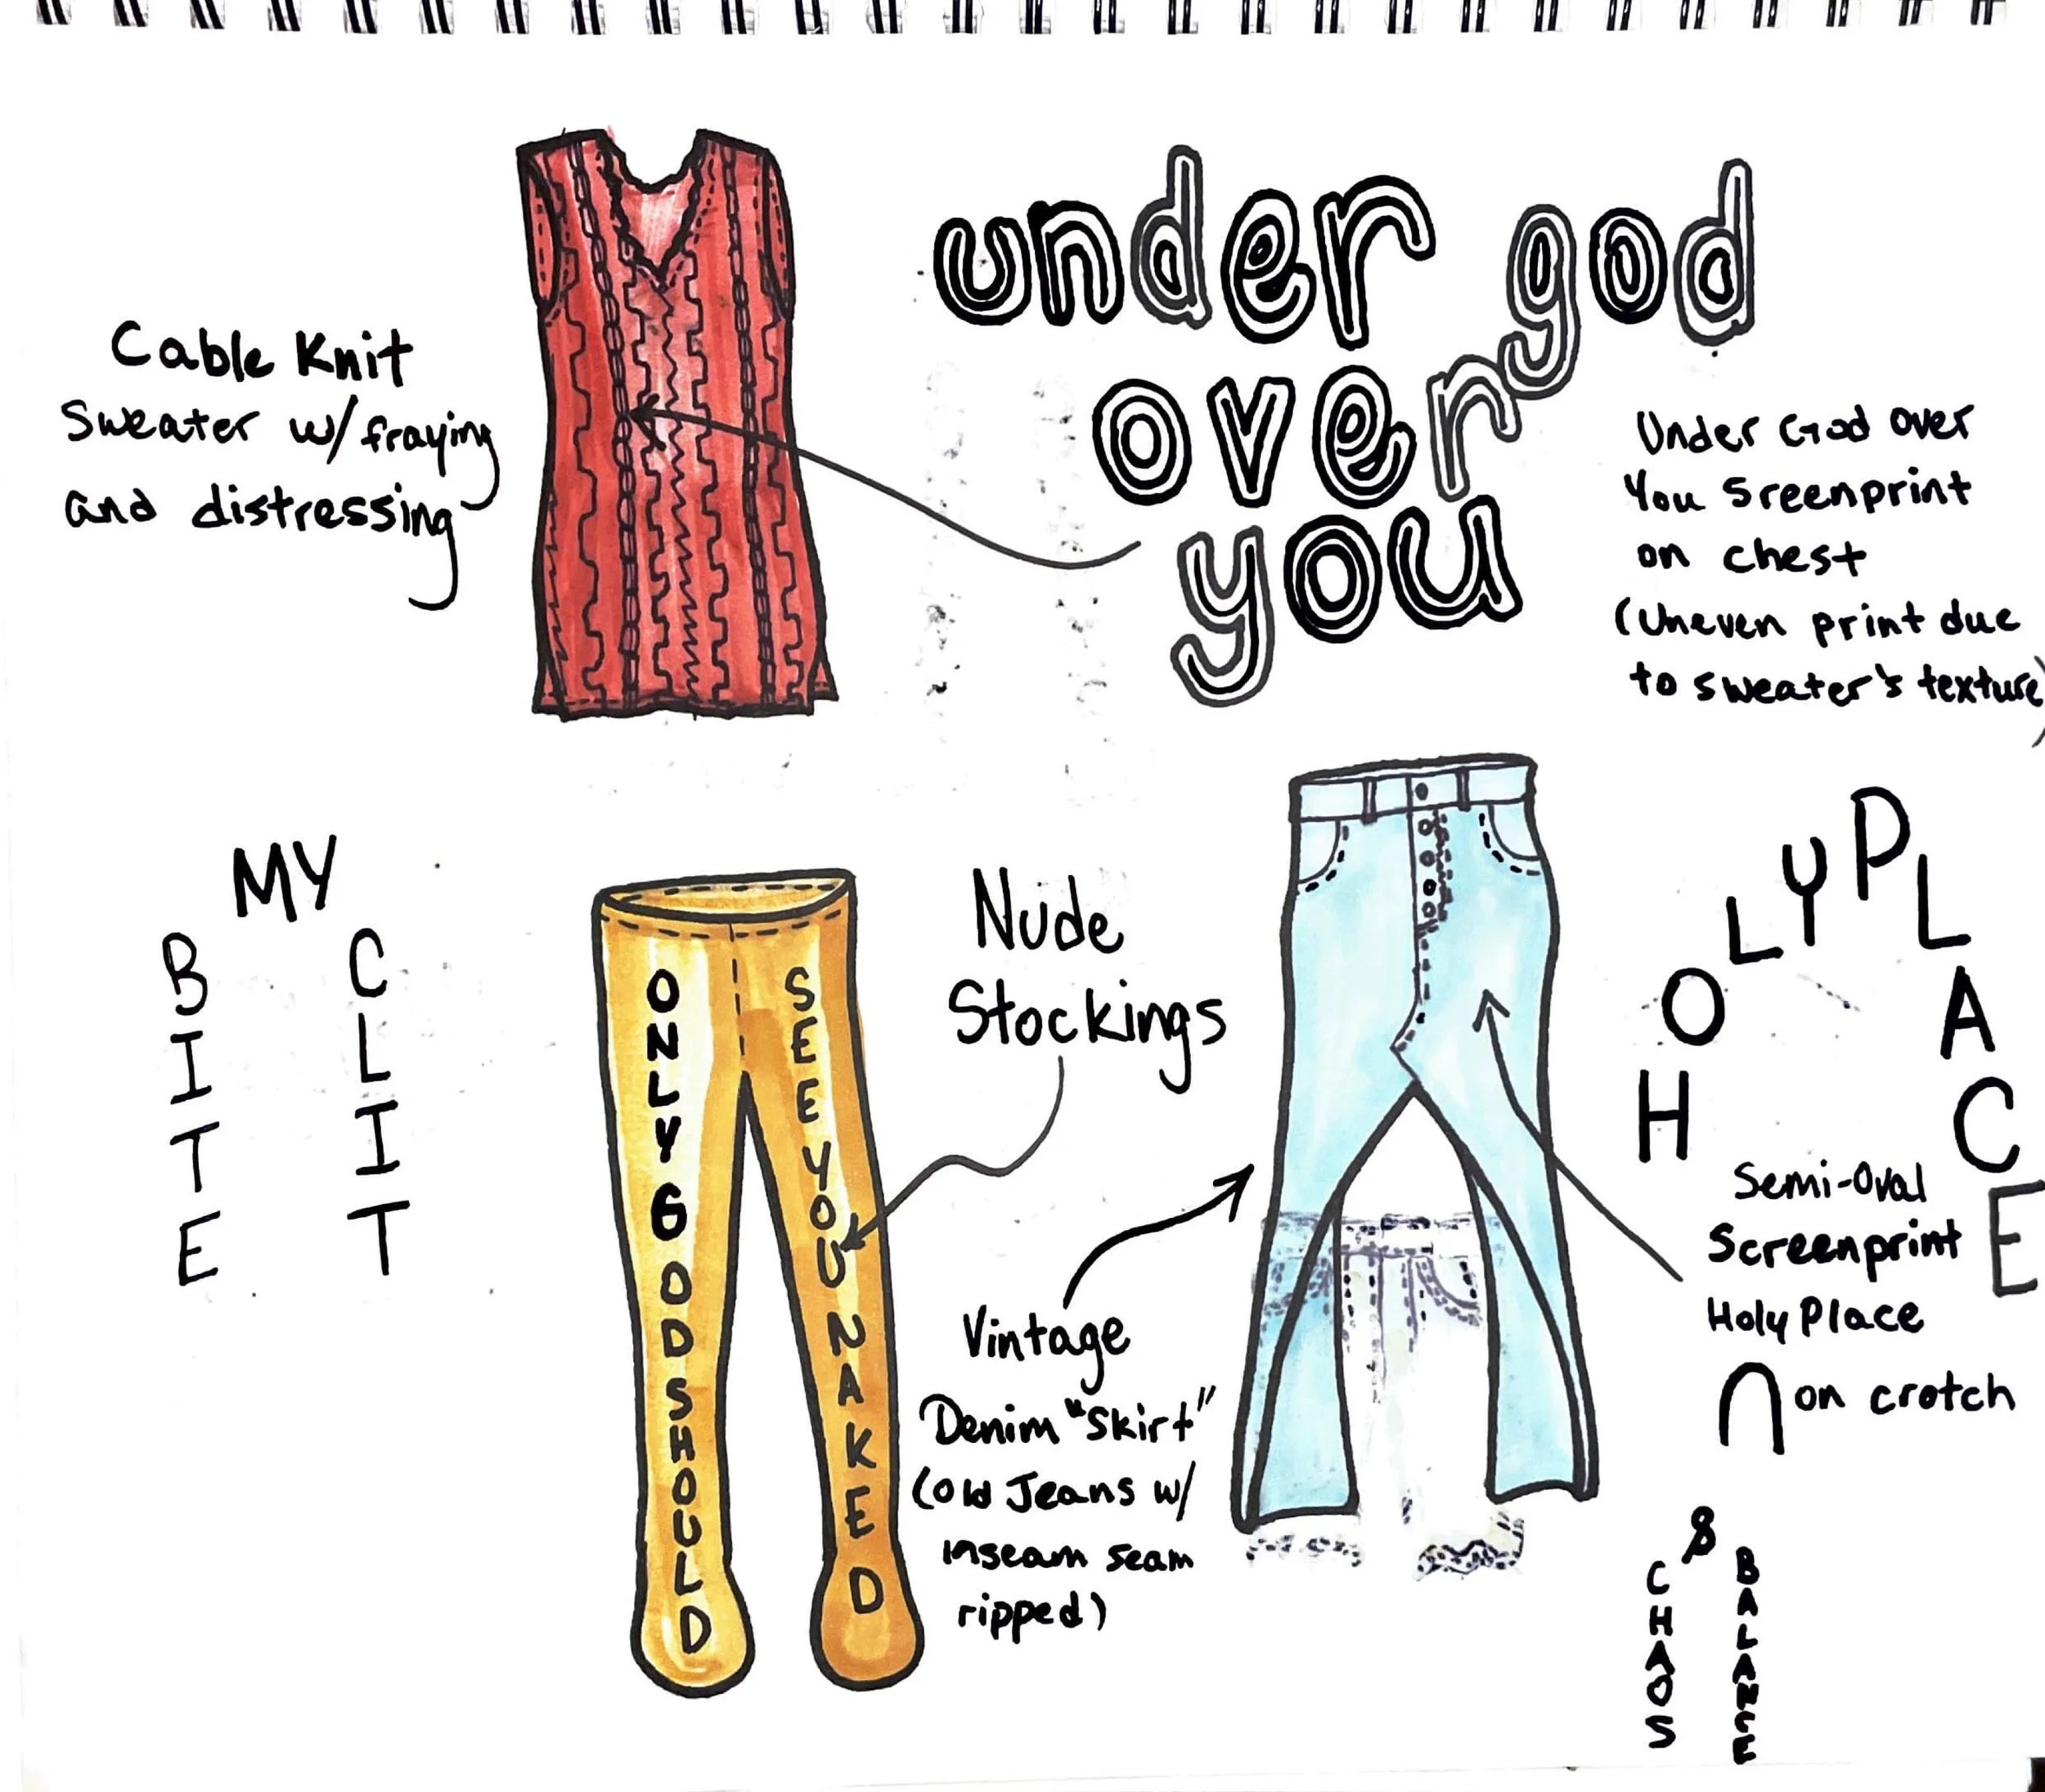 under god
over
you
Cable Knit
Sweater w/fraying
and distressing
Under God over
You Sreenprint
on chest
(Uneven print due
to sweater's texture)
MY
BITE
CLIT
ONLY GOD SHOULD
SEE YOU NAKED
Nude
Stockings
HOLY PLACE
Semi-Oval
Screenprint
Holy Place
on crotch
Vintage
Denim "Skirt"
(old Jeans w/
inseam seam
ripped)
&
CHAOS
BALANCE